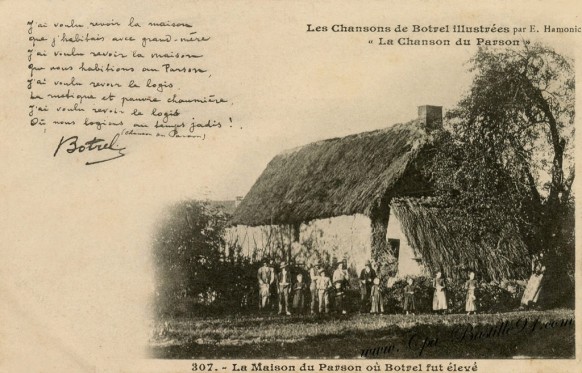 J'ai voulu revoir la maison
que j'habitais avec grand-mère
J'ai voulu revoir la maison
que nous habitions au Parson,
j'ai voulu revoir le logis,
La rustique et pauvre chaumière,
J'ai voulu revoir le logis
Où nous logions au temps jadis !
(chanson du Parson)
Botrel
Les Chansons de Botrel illustrées par E. Hamonic
« La Chanson du Parson »
307. - La Maison du Parson où Botrel fut élevé